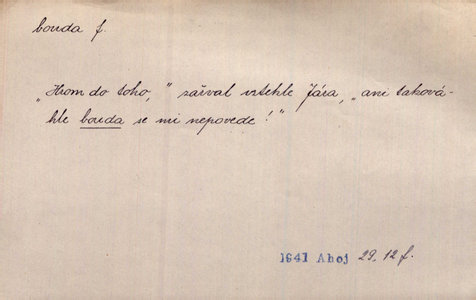 bouda f.
„Hrom do toho," zařval vztekle Jára, „ani taková-
hle bouda se mi nepovede!"
1941 Ahoj 29, 12 f.